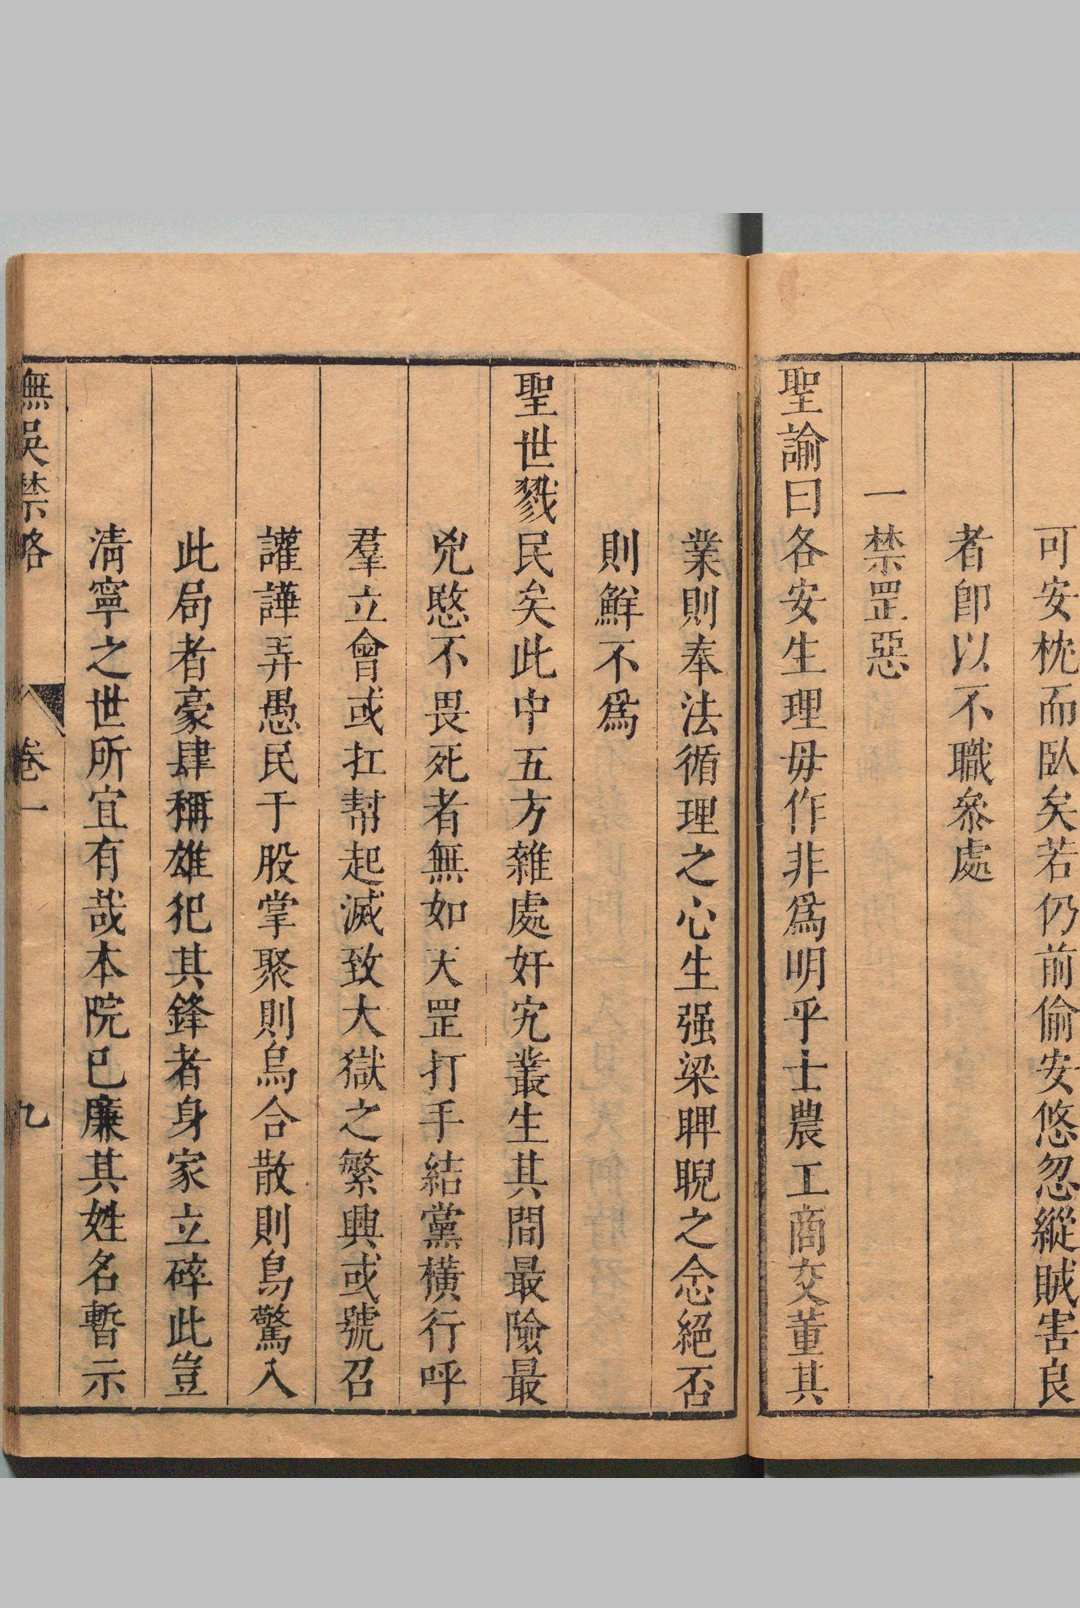 可安枕而臥矣若仍前偷安悠忽縱賊害良
者卽以不職叅處
一禁罡惡
聖諭曰各安生理毋作非爲明乎士農工商交董其
業則奉法循理之心生强梁睥睨之念絕否
則鮮不爲
聖世戮民矣此中五方雜處奸宄叢生其間最險最
兇愍不畏死者無如天罡打手結黨橫行呼
羣立會或扛幫起滅致大獄之繁興或號召
讙譁弄愚民于股掌聚則烏合散則鳥驚入
此局者豪肆稱雄犯其鋒者身家立碎此豈
淸寧之世所宜有哉本院已廉其姓名暫示
撫吳禁略 卷一 九